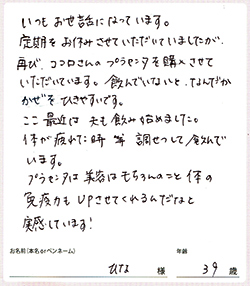 いつもお世話になっています。
定期をお休みさせていただいていましたが、
再び、ココロさんのプラセンタを購入させて
いただいています。飲んでいないと、なんだか
かぜをひきやすいです。
ここ最近は夫も飲み始めました。
体が疲れた時等 調せつして飲んで
います。
プラセンタは美容はもちろんのこと体の
免疫力もUPさせてくれるんだなと
実感しています!
お名前(本名orペンネーム)
年齢
ひな 様 39 歳